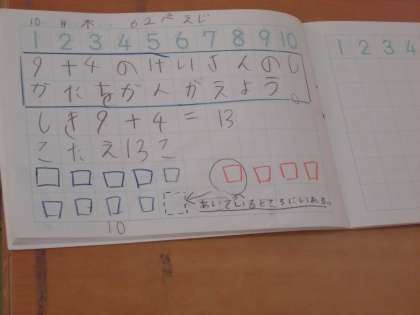 10 日 木 62ぺえじ
1 2 3 4 5 6 7 8 9 10
9+4のけいさんのし
かたをかんがえよう。
しき9+4=13
こたえ13こ
あいているところにいれる。
10
1 2 3 4